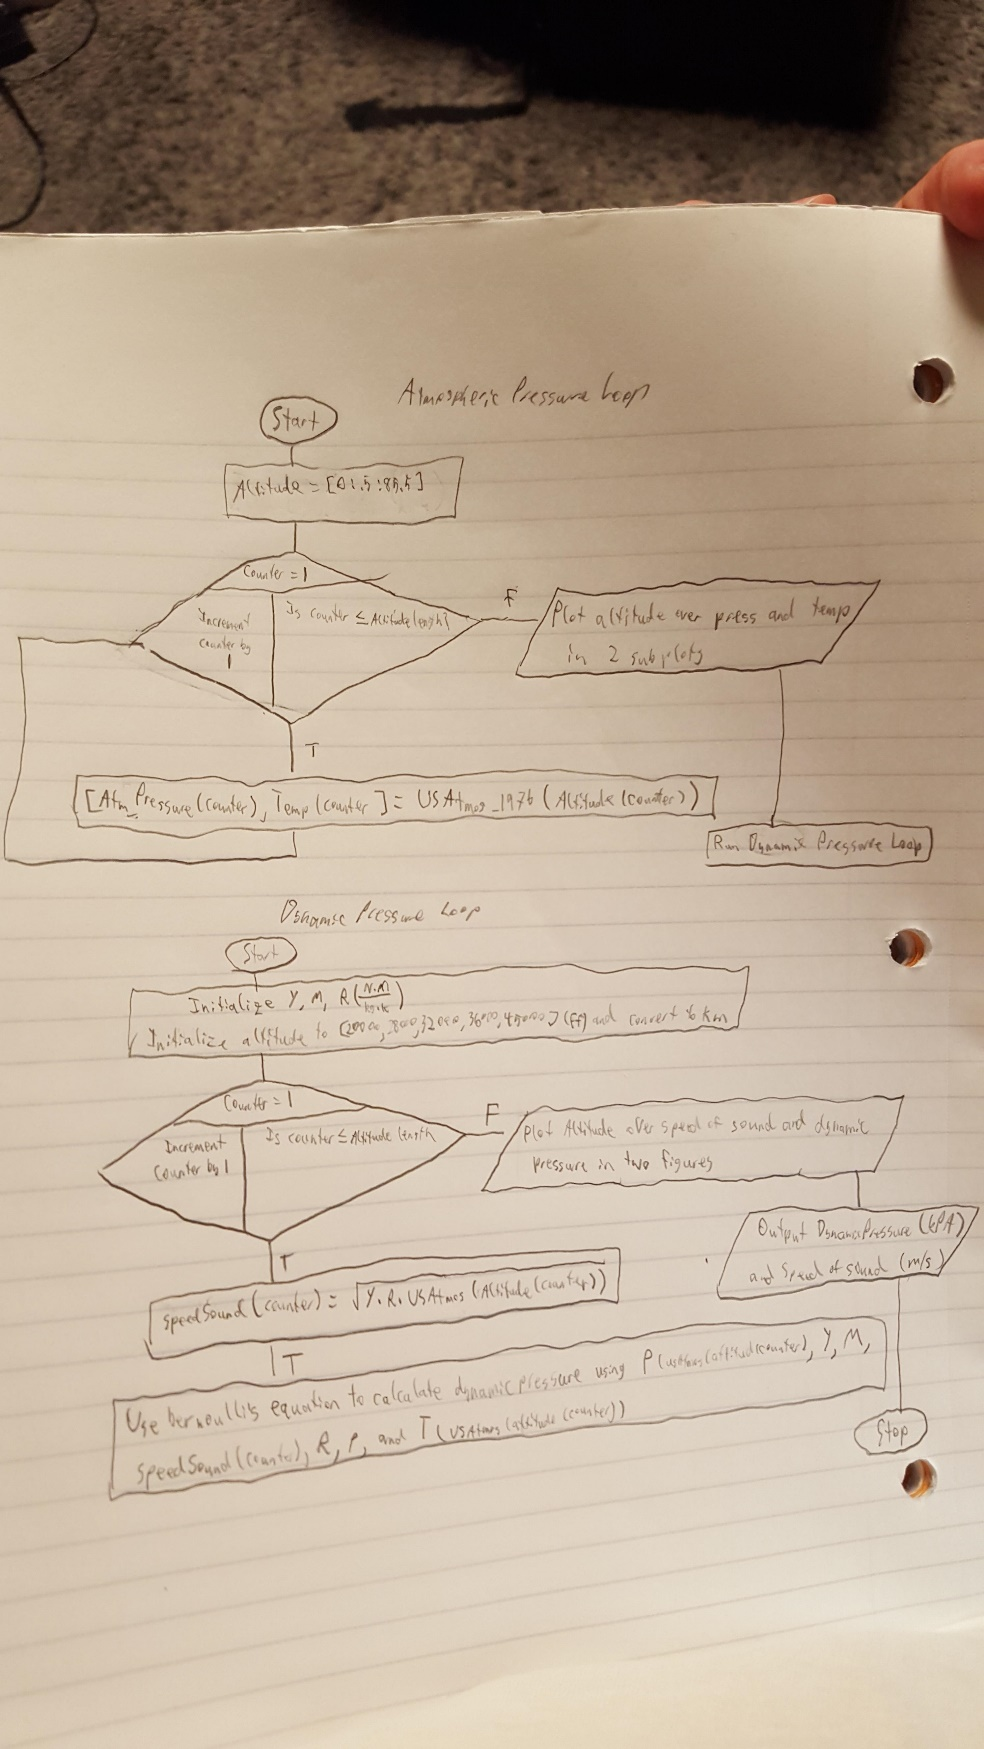 Atmospheric Pressure Loop
Start
Altitude = [0:.5:85.5]
Counter = 1
Increment
counter by
1
Is counter ≤ Altitude length?
F
Plot altitude over press and temp
in 2 subplots
T
[Atm_Pressure(counter), Temp(counter] = USAtmos_1976(Altitude(counter))
Run Dynamic Pressure Loop
Dynamic Pressure Loop
Start
Initialize Y, M, R(N.M/kg.k)
Initialize altitude to [20000, 32000, 36000, 45000](ft) and convert to km
Counter = 1
Increment
Counter by 1
Is counter ≤ Altitude length
F
Plot Altitude over speed of sound and dynamic
pressure in two figures
Output Dynamic Pressure (kPA)
and Speed of sound (m/s)
T
speedSound(counter) = √Y.R.USAtmos(Altitude(counter))
T
Use bernoulli's equation to calculate dynamic pressure using P(usAtmos(altitude(counter)), Y, M,
speedSound(counter), R, P, and T(USAtmos(altitude(counter))
Stop